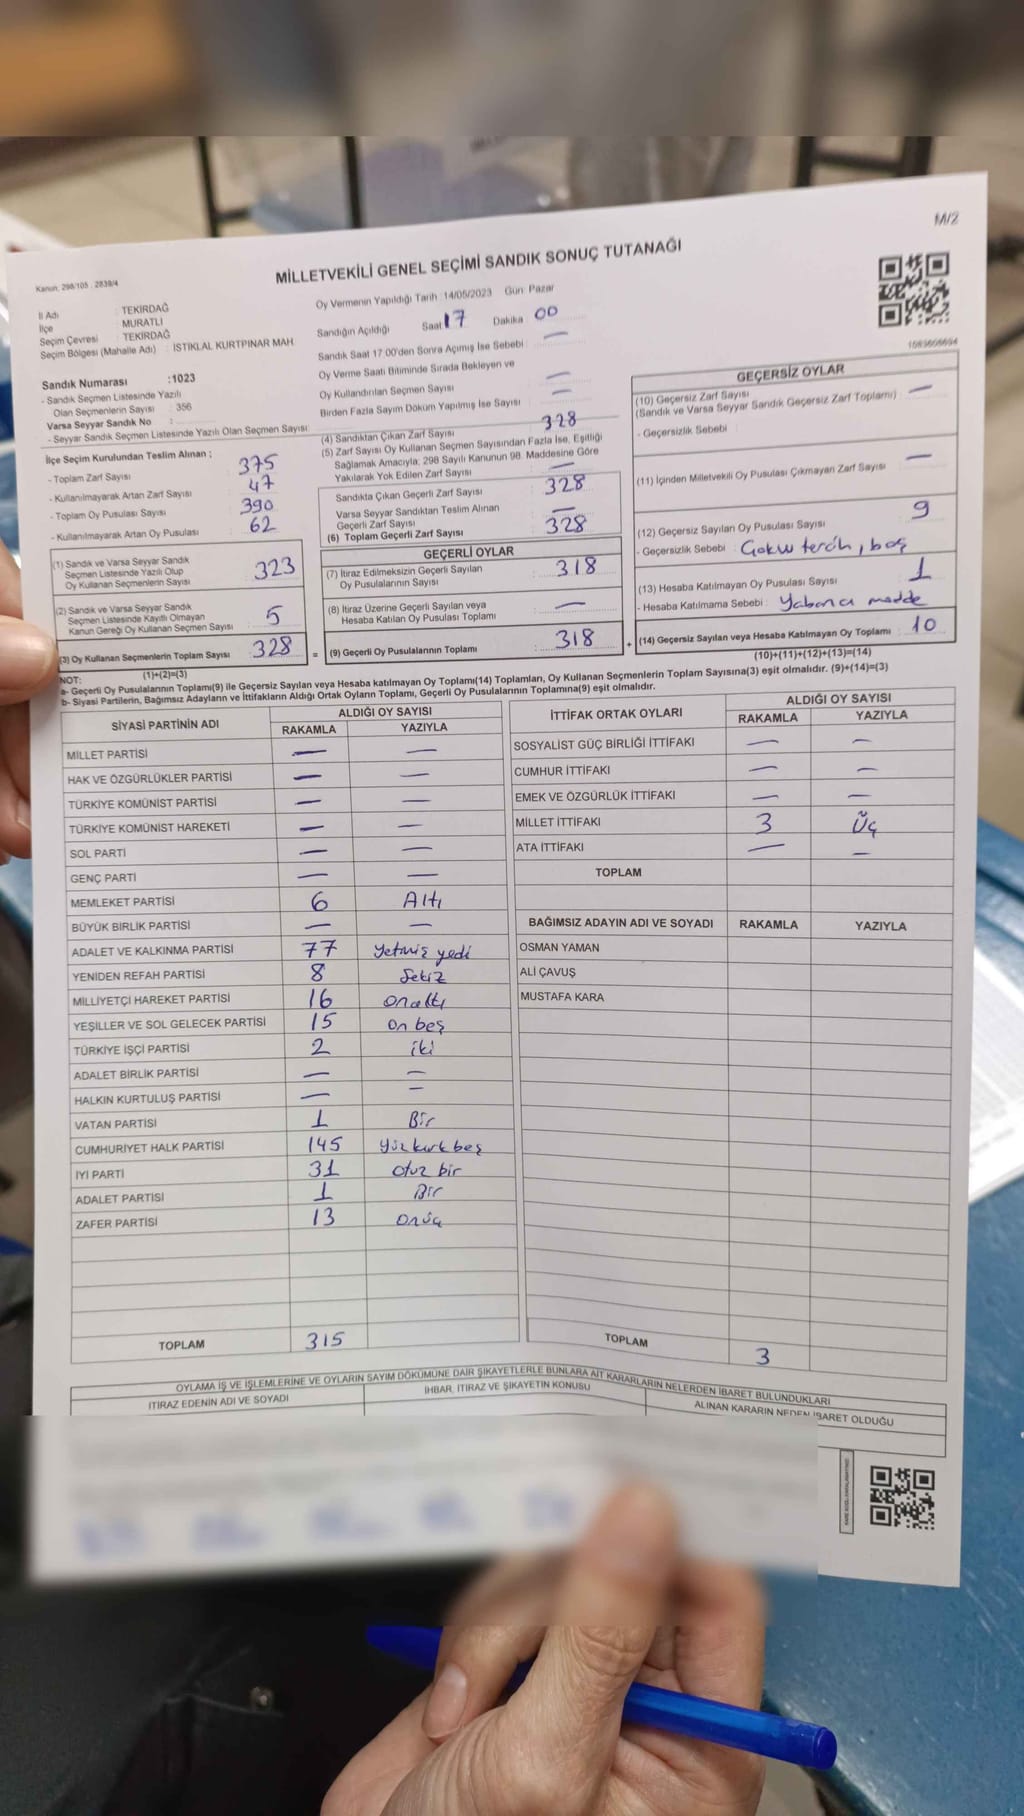 M/2
MİLLETVEKİLİ GENEL SEÇİMİ SANDIK SONUÇ TUTANAĞI
Kanun: 298/105 , 2839/4
İl Adı : TEKİRDAĞ
İlçe : MURATLI
Seçim Çevresi : TEKİRDAĞ
Seçim Bölgesi (Mahalle Adı) : İSTİKLAL KURTPINAR MAH.
Sandık Numarası :1023
- Sandık Seçmen Listesinde Yazılı
Olan Seçmenlerin Sayısı : 356
Varsa Seyyar Sandık No :
- Seyyar Sandık Seçmen Listesinde Yazılı Olan Seçmen Sayısı:
İlçe Seçim Kurulundan Teslim Alınan ;
- Toplam Zarf Sayısı : 375
- Kullanılmayarak Artan Zarf Sayısı : 47
- Toplam Oy Pusulası Sayısı : 390
- Kullanılmayarak Artan Oy Pusulası : 62
(1) Sandık ve Varsa Seyyar Sandık
Seçmen Listesinde Yazılı Olup
Oy Kullanan Seçmenlerin Sayısı : 323
(2) Sandık ve Varsa Seyyar Sandık
Seçmen Listesinde Kayıtlı Olmayan
Kanun Gereği Oy Kullanan Seçmen Sayısı : 5
(3) Oy Kullanan Seçmenlerin Toplam Sayısı : 328
(1)+(2)=(3)
Oy Vermenin Yapıldığı Tarih :14/05/2023 Gün: Pazar
Sandığın Açıldığı Saat 17 Dakika : 00
Sandık Saat 17:00'den Sonra Açımış İse Sebebi : —
Oy Verme Saati Bitiminde Sırada Bekleyen ve
Oy Kullandırılan Seçmen Sayısı : —
Birden Fazla Sayım Döküm Yapılmış İse Sayısı : —
(4) Sandıktan Çıkan Zarf Sayısı : 328
(5) Zarf Sayısı Oy Kullanan Seçmen Sayısından Fazla İse, Eşitliği
Sağlamak Amacıyla; 298 Sayılı Kanunun 98. Maddesine Göre
Yakılarak Yok Edilen Zarf Sayısı : —
Sandıkta Çıkan Geçerli Zarf Sayısı : 328
Varsa Seyyar Sandıktan Teslim Alınan
Geçerli Zarf Sayısı : —
(6) Toplam Geçerli Zarf Sayısı : 328
GEÇERLİ OYLAR
(7) İtiraz Edilmeksizin Geçerli Sayılan
Oy Pusulalarının Sayısı : 318
(8) İtiraz Üzerine Geçerli Sayılan veya
Hesaba Katılan Oy Pusulası Toplamı : —
= (9) Geçerli Oy Pusulalarının Toplamı : 318 +
GEÇERSİZ OYLAR
(10) Geçersiz Zarf Sayısı
(Sandık ve Varsa Seyyar Sandık Geçersiz Zarf Toplamı) : —
- Geçersizlik Sebebi :
(11) İçinden Milletvekili Oy Pusulası Çıkmayan Zarf Sayısı : —
(12) Geçersiz Sayılan Oy Pusulası Sayısı : 9
- Geçersizlik Sebebi : tercih, boş
(13) Hesaba Katılmayan Oy Pusulası Sayısı : 1
- Hesaba Katılmama Sebebi : Yabancı madde
(14) Geçersiz Sayılan veya Hesaba Katılmayan Oy Toplamı : 10
(10)+(11)+(12)+(13)=(14)
NOT:
a- Geçerli Oy Pusulalarının Toplamı(9) ile Geçersiz Sayılan veya Hesaba katılmayan Oy Toplamı(14) Toplamları, Oy Kullanan Seçmenlerin Toplam Sayısına(3) eşit olmalıdır. (9)+(14)=(3)
b- Siyasi Partilerin, Bağımsız Adayların ve İttifakların Aldığı Ortak Oyların Toplamı, Geçerli Oy Pusulalarının Toplamına(9) eşit olmalıdır.
SİYASİ PARTİNİN ADI ALDIĞI OY SAYISI
RAKAMLA YAZIYLA
MİLLET PARTİSİ — —
HAK VE ÖZGÜRLÜKLER PARTİSİ — —
TÜRKİYE KOMÜNİST PARTİSİ — —
TÜRKİYE KOMÜNİST HAREKETİ — —
SOL PARTİ — —
GENÇ PARTİ — —
MEMLEKET PARTİSİ 6 Altı
BÜYÜK BİRLİK PARTİSİ — —
ADALET VE KALKINMA PARTİSİ 77 Yetmiş yedi
YENİDEN REFAH PARTİSİ 8 Sekiz
MİLLİYETÇİ HAREKET PARTİSİ 16 on altı
YEŞİLLER VE SOL GELECEK PARTİSİ 15 on beş
TÜRKİYE İŞÇİ PARTİSİ 2 iki
ADALET BİRLİK PARTİSİ — —
HALKIN KURTULUŞ PARTİSİ — —
VATAN PARTİSİ 1 Bir
CUMHURİYET HALK PARTİSİ 145 yüz kırk beş
İYİ PARTİ 31 otuz bir
ADALET PARTİSİ 1 Bir
ZAFER PARTİSİ 13 onüç
TOPLAM 315
İTTİFAK ORTAK OYLARI ALDIĞI OY SAYISI
RAKAMLA YAZIYLA
SOSYALİST GÜÇ BİRLİĞİ İTTİFAKI — —
CUMHUR İTTİFAKI — —
EMEK VE ÖZGÜRLÜK İTTİFAKI — —
MİLLET İTTİFAKI 3 Üç
ATA İTTİFAKI — —
TOPLAM
BAĞIMSIZ ADAYIN ADI VE SOYADI RAKAMLA YAZIYLA
OSMAN YAMAN
ALİ ÇAVUŞ
MUSTAFA KARA
TOPLAM 3
OYLAMA İŞ VE İŞLEMLERİNE VE OYLARIN SAYIM DÖKÜMÜNE DAİR ŞİKAYETLERLE BUNLARA AİT KARARLARIN NELERDEN İBARET BULUNDUKLARI
İTİRAZ EDENİN ADI VE SOYADI İHBAR, İTİRAZ VE ŞİKAYETİN KONUSU ALINAN KARARIN NEDEN İBARET OLDUĞU